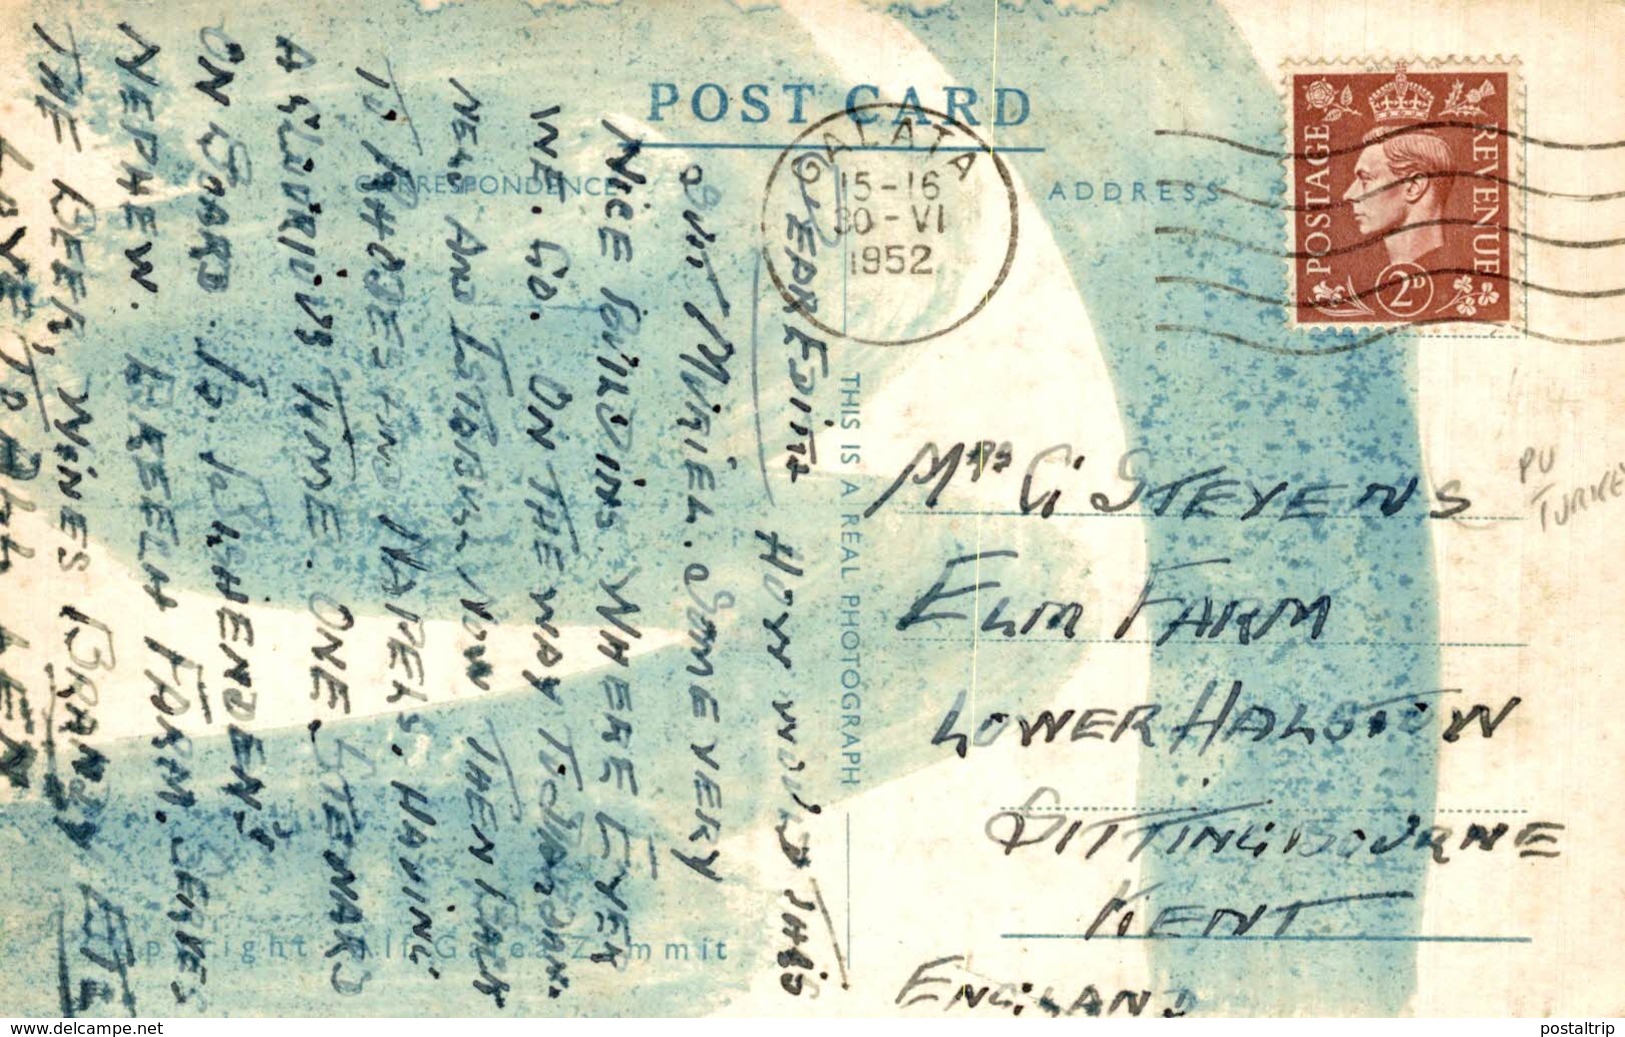 POST CARD
CORRESPONDENCE
ADDRESS
THIS IS A REAL PHOTOGRAPH
Copyright Alf Galea Zammit
GALATA
15-16
30-VI
1952
POSTAGE
REVENUE
2D
MRS G STEVENS
ELM FARM
LOWER HALSTOW
SITTINGBOURNE
KENT
ENGLAND
PU
TURKEY
DEAR EDITH HOW WOULD THIS
SUIT MURIEL. SOME VERY
NICE BUILDING. WHERE EVER
WE. GO. ON THE WAY TO
NEW AND ISTANBUL NOW THEN BACK
TO RHODES AND NAPELS. HAVING
A GLORIOUS TIME. ONE. STEWARD
ON BOARD. IS LA WHENDEN'S
NEPHEW. BREECH FARM. SERVES
THE BEER, WINES BRANDY ETC
LOVE TO ALL LEN
www.delcampe.net
postaltrip